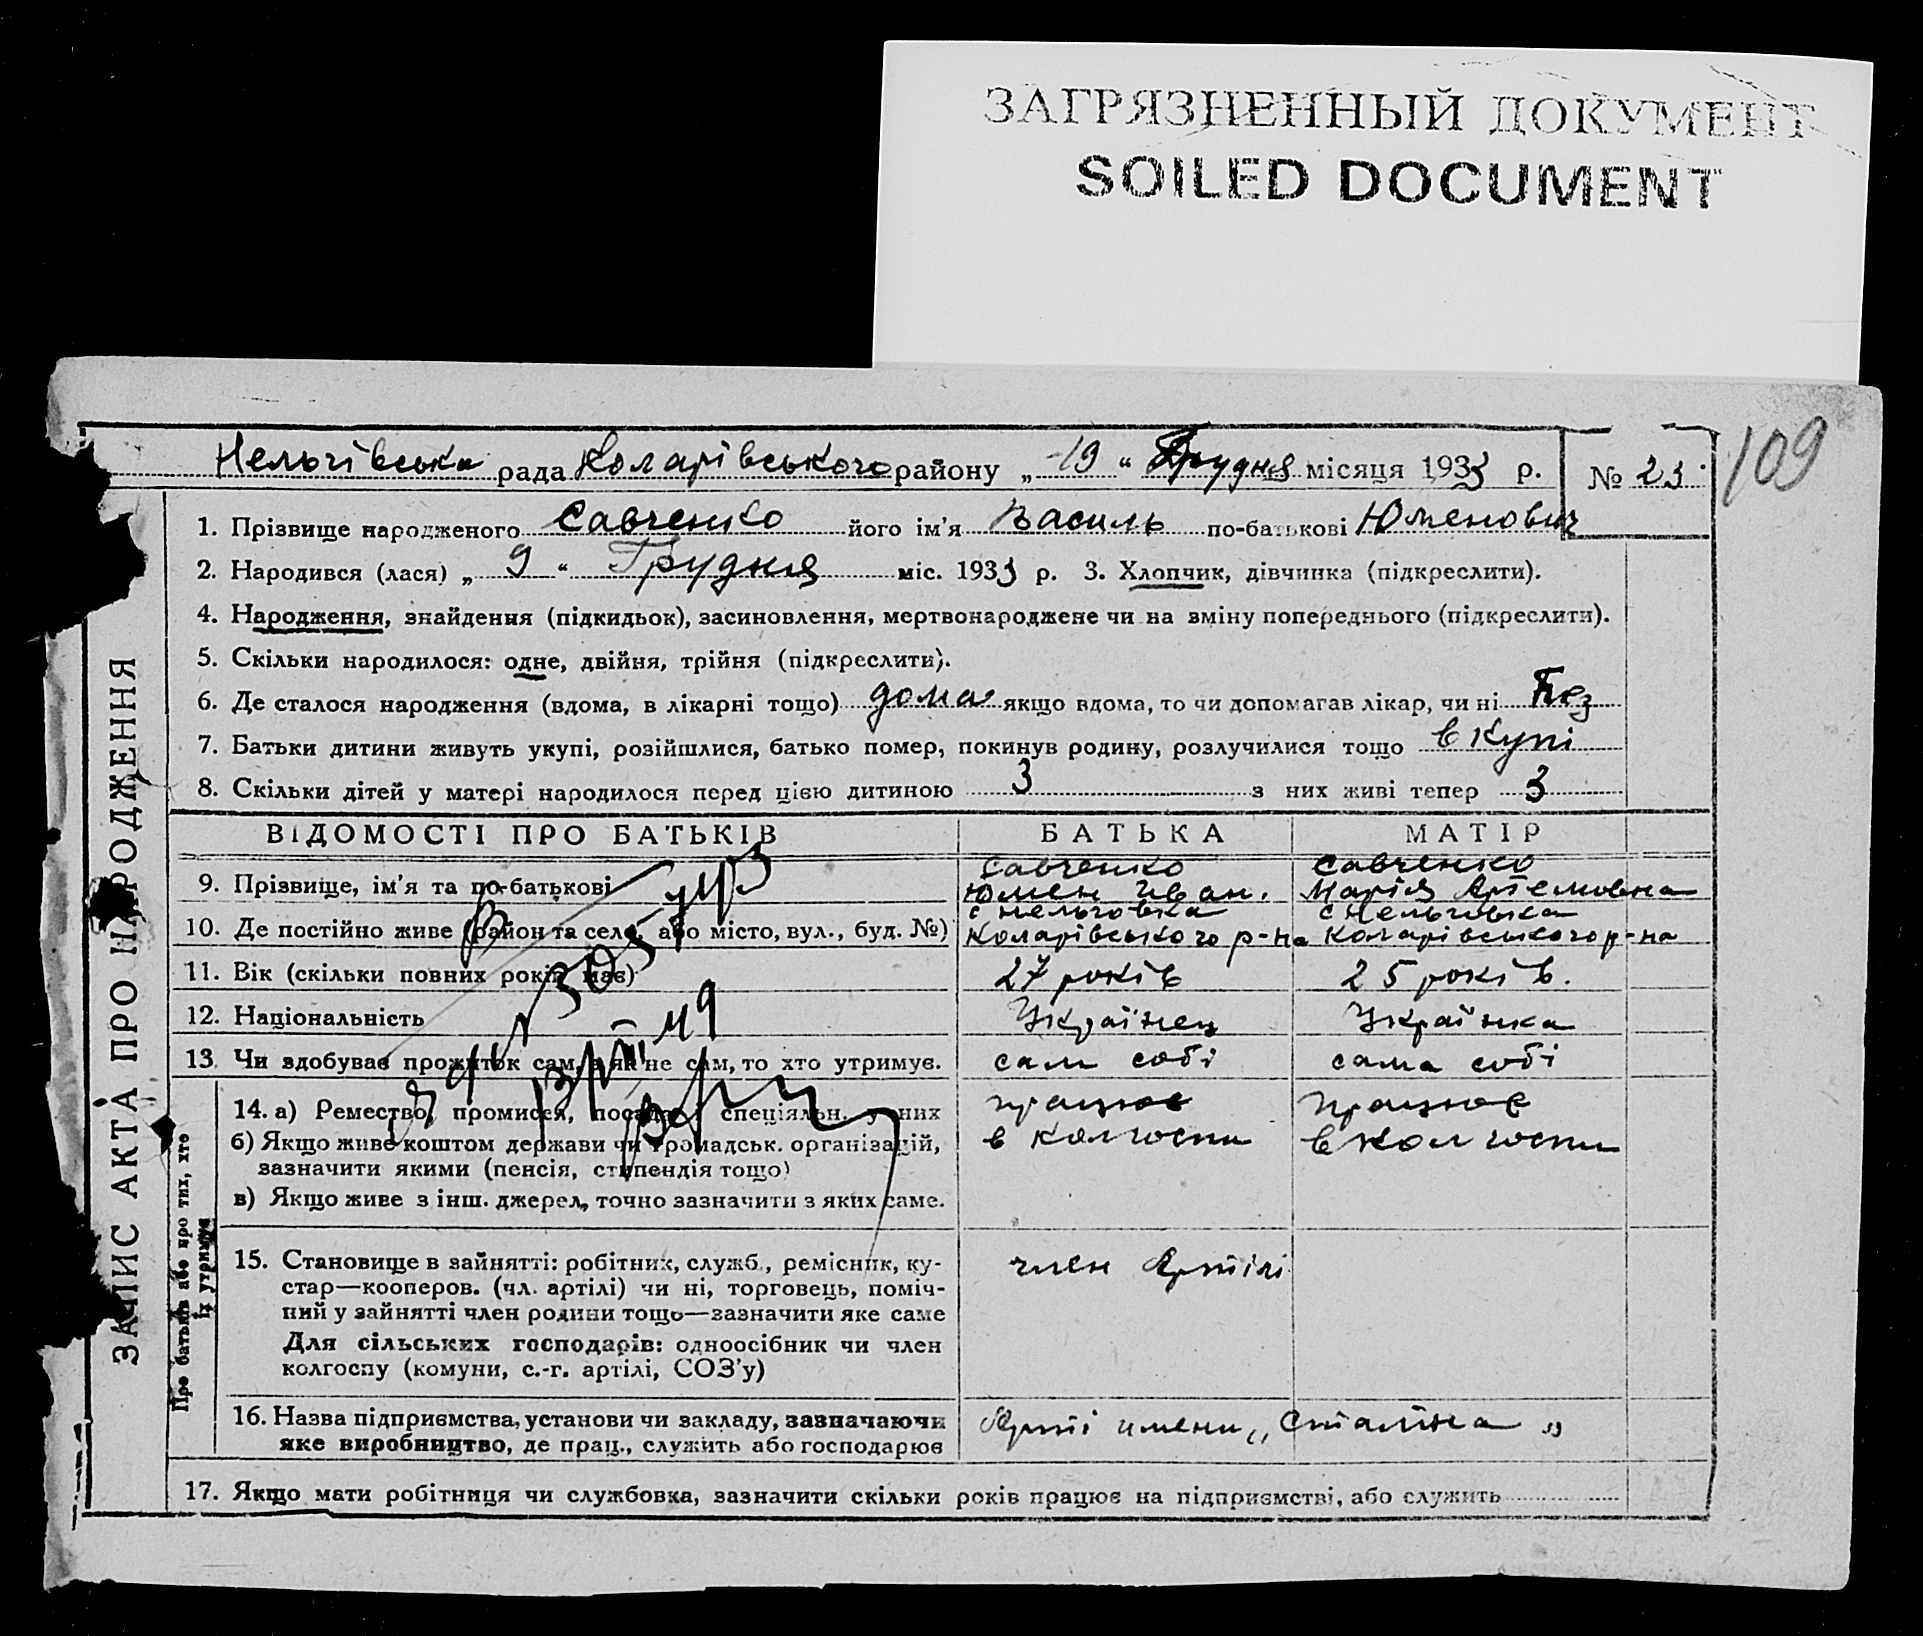 ЗАГРЯЗНЕННЫЙ ДОКУМЕНТ
SOILED DOCUMENT
109
Нельгівська рада Коларівського району „ 19 “ Грудня місяця 1933 р. № 23
1. Прізвище народженого Савченко його ім'я Василь по-батькові Юменович
2. Народився (лася) „ 9 “ Грудня міс. 1933 р. 3. Хлопчик, дівчинка (підкреслити).
4. Народження, знайдення (підкидьок), засиновлення, мертвонароджене чи на зміну попереднього (підкреслити).
5. Скільки народилося: одне, двійня, трійня (підкреслити).
6. Де сталося народження (вдома, в лікарні тощо) дома якщо вдома, то чи допомагав лікар, чи ні Без
7. Батьки дитини живуть укупі, розійшлися, батько помер, покинув родину, розлучилися тощо в купі
8. Скільки дітей у матері народилося перед цією дитиною 3 з них живі тепер 3
ЗАПИС АКТА ПРО НАРОДЖЕННЯ
ВІДОМОСТІ ПРО БАТЬКІВ БАТЬКА МАТІР
9. Прізвище, ім'я та по-батькові Савченко Юмен Иван. Савченко Марія Артемовна
10. Де постійно живе (район та село, або місто, вул., буд. №) с Нельговка Коларівського р-на с Нельговка Коларівського р-на
11. Вік (скільки повних років має) 27 років 25 років.
12. Національність Українец Українка
13. Чи здобуває прожиток сам, а як не сам, то хто утримує. сам собі сама собі
Про батьків або про тих, хто їх утримує
14. а) Ремество, промисел, посада, спеціяльн. у них працює в колгоспи працює в колгоспи
б) Якщо живе коштом держави чи громадськ. організацій,
зазначити якими (пенсія, стипендія тощо)
в) Якщо живе з інш. джерел, точно зазначити з яких саме.
15. Становище в зайнятті: робітник, служб., ремісник, ку-
стар—кооперов. (чл. артілі) чи ні, торговець, поміч-
ний у зайнятті член родини тощо—зазначити яке саме
член Артілі
Для сільських господарів: одноосібник чи член
колгоспу (комуни, с.-г. артілі, СОЗ'у)
16. Назва підприємства, установи чи закладу, зазначаючи
яке виробництво, де прац., служить або господарює
Арті имени „Сталіна"
17. Якщо мати робітниця чи службовка, зазначити скільки років працює на підприємстві, або служить